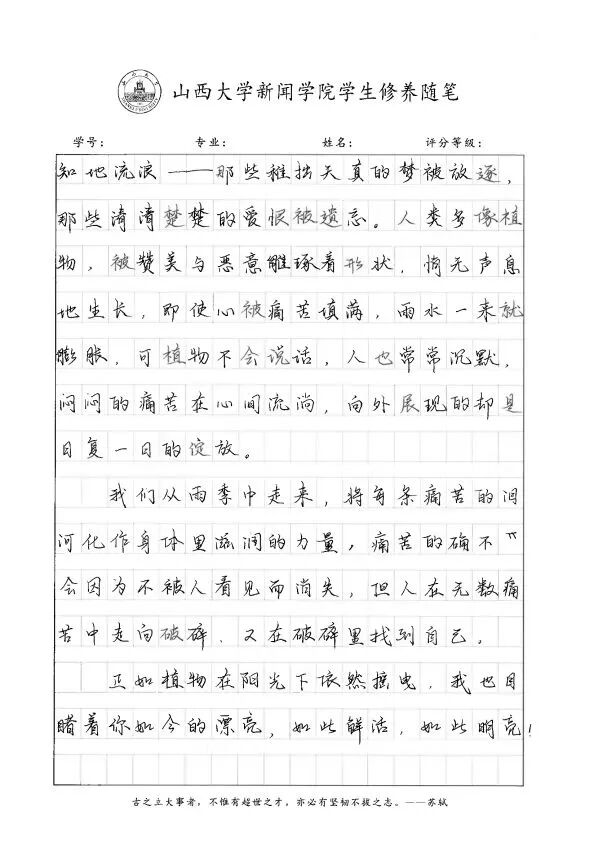 山西大学新闻学院学生修养随笔
学号： 专业： 姓名： 评分等级：
知地流浪——那些稚拙天真的梦被放逐，
那些清清楚楚的爱恨被遗忘。人类多像植
物，被赞美与恶意雕琢着形状，悄无声息
地生长，即使心被痛苦填满，雨水一来就
膨胀，可植物不会说话，人也常常沉默，
闷闷的痛苦在心间流淌，向外展现的却是
日复一日的绽放。
我们从雨季中走来，将每条痛苦的泪
河化作身体里滋润的力量，痛苦的确不
会因为不被人看见而消失，但人在无数痛
苦中走向破碎、又在破碎里找到自己。
正如植物在阳光下依然摇曳，我也目
睹着你如今的漂亮，如此鲜活，如此明亮！
古之立大事者，不惟有超世之才，亦必有坚韧不拔之志。——苏轼